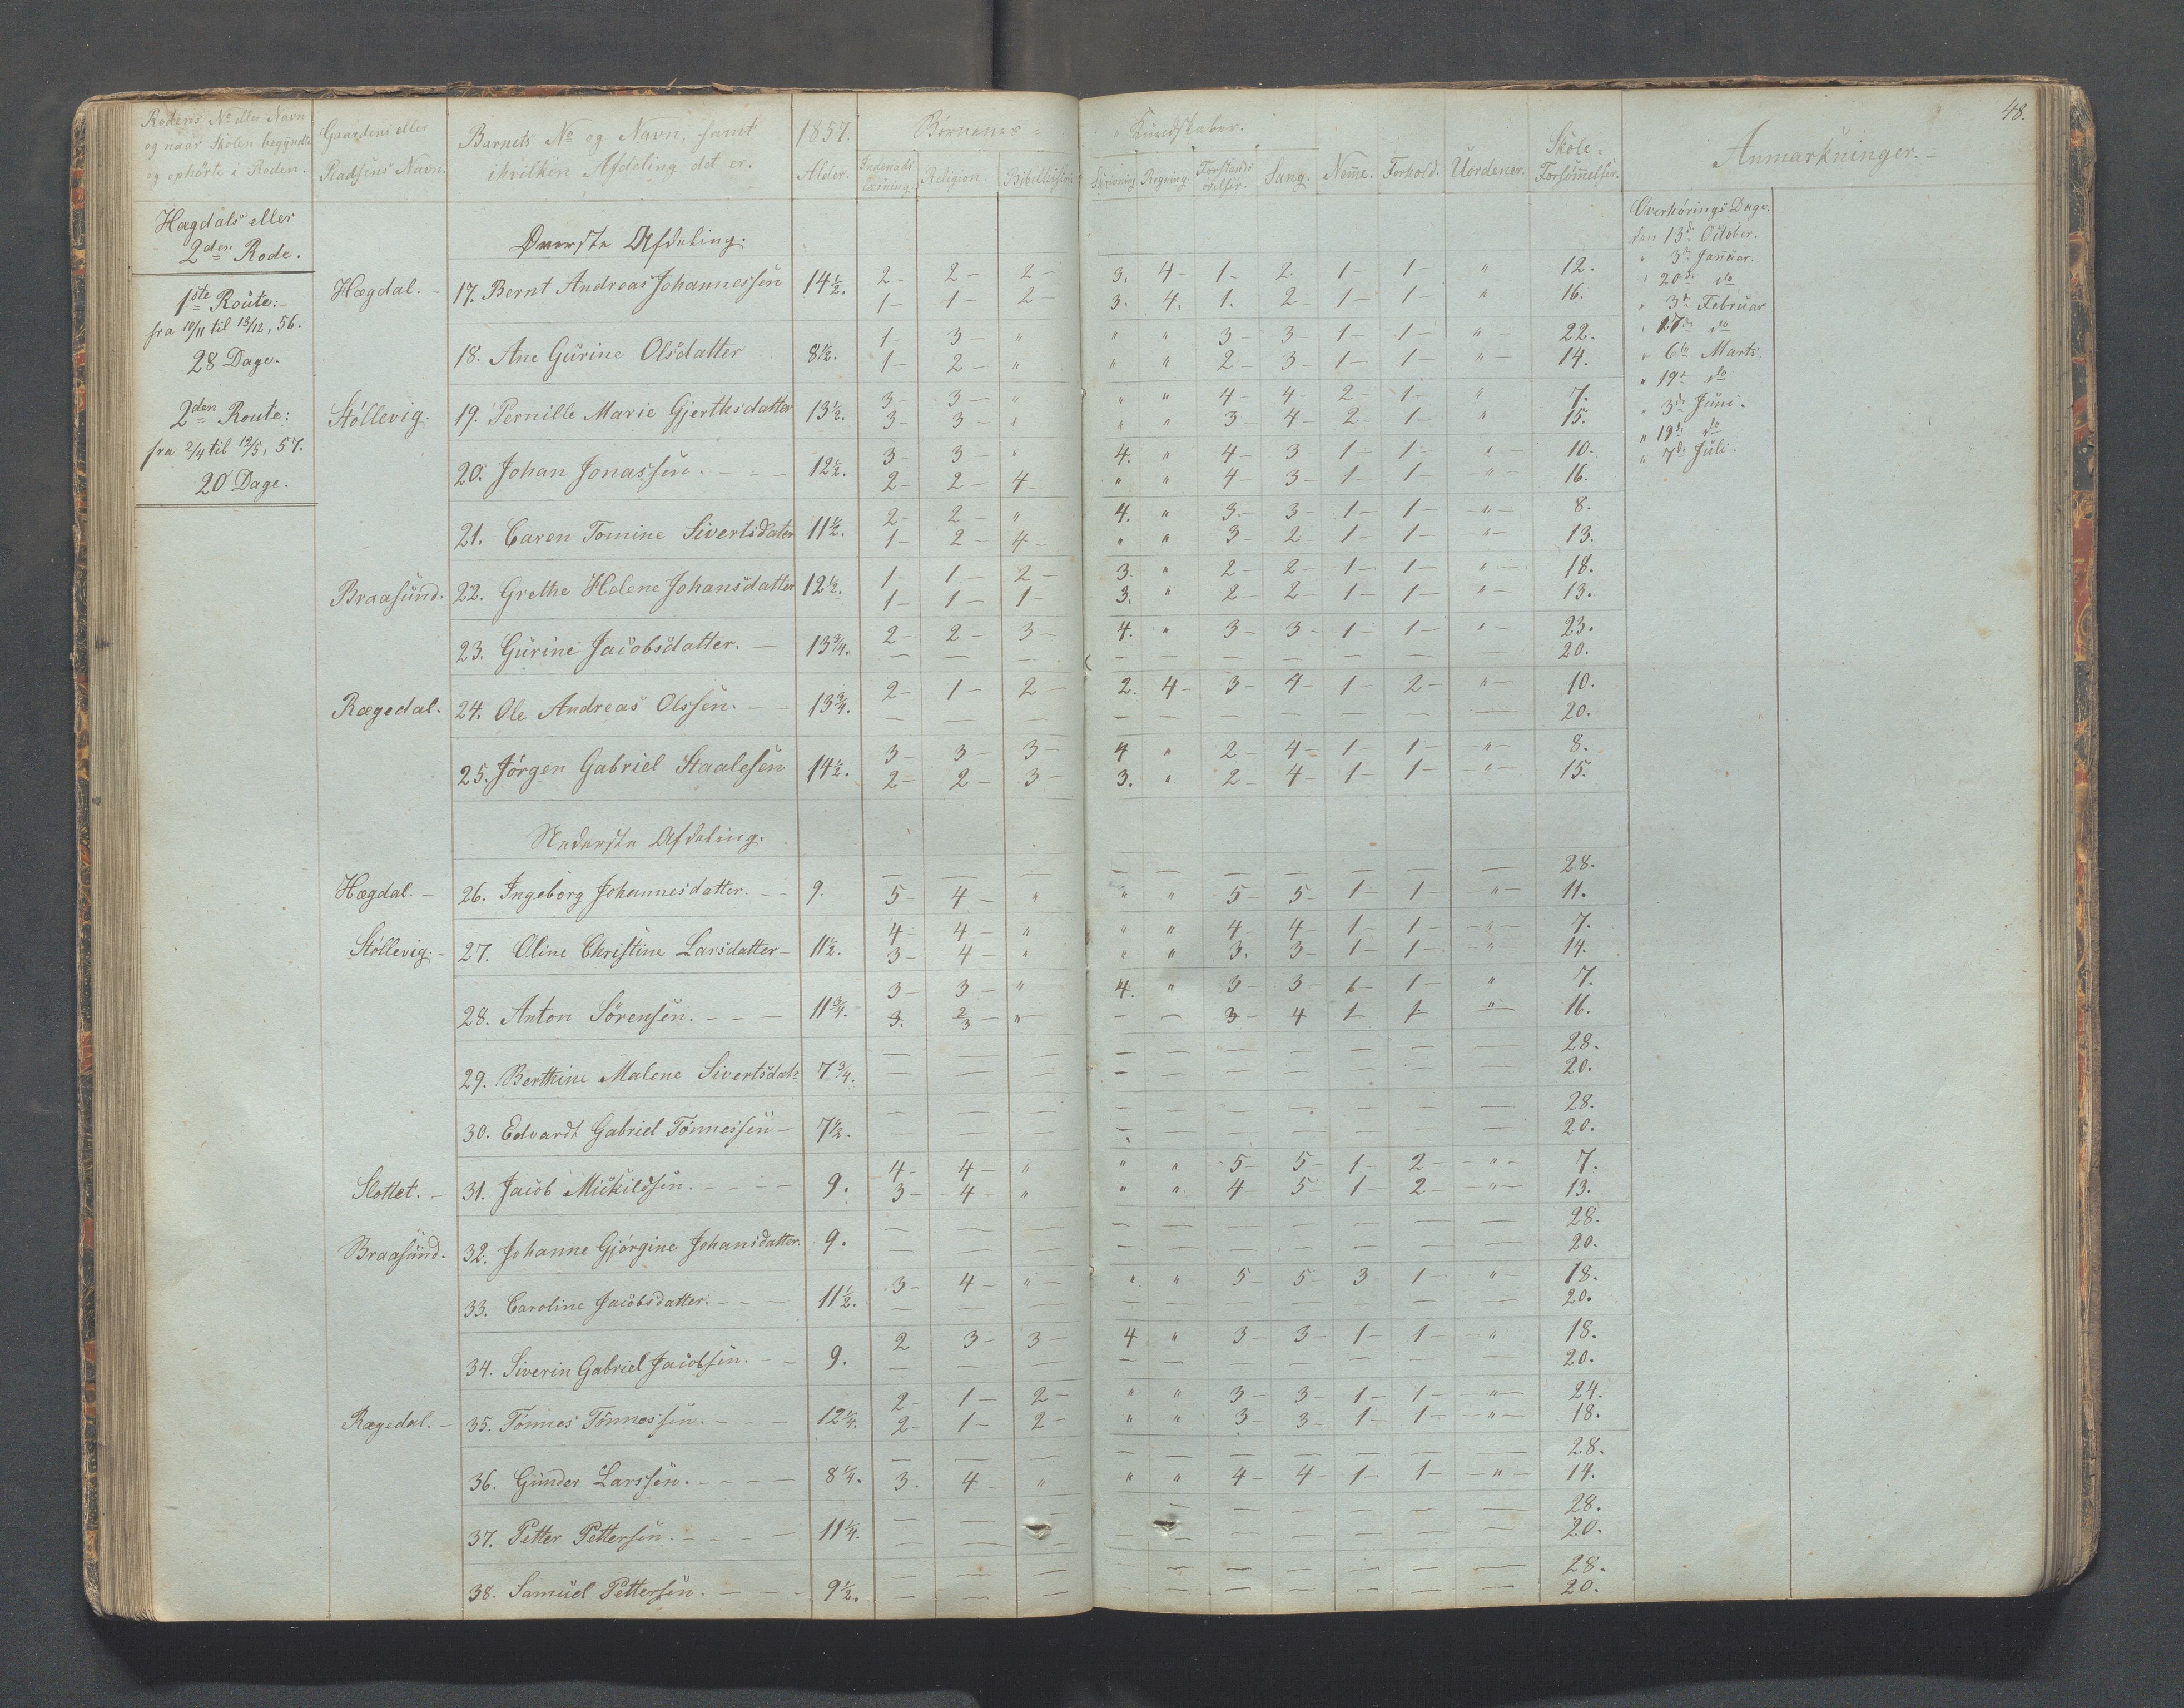 48.
Rodens No eller Navn og naar Skolen begyndte og ophørte i Roden. | Gaardens eller Pladsens Navn. | Barnets No og Navn, samt ihvilken Afdeling det er. | 1857. Alder. | Børnenes Kundskaber. | Indenads Læsning. | Religion. | Bibelhistorie | Skrivning | Regning. | Forstands øvelser. | Sang. | Nemme. | Forhold. | Uordener. | Skole-Forsømmelser. | Anmærkninger.
Hægdals eller
2den Rode.
1ste Route:
fra 10/11 til 13/12, 56.
28 Dage.
2den Route:
fra 2/4 til 12/5, 57.
20 Dage.
Øverste Afdeling.
Hægdal. - 17. Bernt Andreas Johannessen 14 1/2. 2- 2- 2- 3. 4- 1- 2 1- 1- " 12.
1- 1- 2- 3. 4. 1. 2- 1- 1- " 16.
18. Ane Gurine Olsdatter 8 1/2. 1- 3- " " " 3- 3- 1- 1- " 22.
1- 2- " " " 2- 3- 1- 1- " 14.
Støllevig. 19. Pernille Marie Gjerthsdatter 13 1/2. 3- 3- " " " 4- 4- 2- 1- " 7.
3- 3- " " " 3- 4- 2- 1- " 15.
20. Johan Jonassen. 12 1/2. 3- 3- " 4. " 4- 3- 1- 1- " 10.
2- 2- 4- " " 4- 3- 1- 1- " 16.
21. Caren Tomine Sivertsdater 11 1/2. 2- 2- " 4. " 3- 3- 1- 1- " 8.
1- 2- 4- " " 3- 2- 1- 1- " 13.
Braasund. 22. Grethe Helene Johansdatter 12 1/2. 1- 1- 2- 3. " 2- 2- 1- 1- " 18.
1- 1- 1- 3. " 2- 2- 1- 1- " 13.
23. Gurine Jacobsdatter. - 13 3/4. 2- 2- 3- 4. " 3- 3- 1- 1- " 23.
— — — — — — — — — 20.
Rægedal. 24. Ole Andreas Olssen. 13 3/4. 2- 1- 2- 2. 4- 3- 4- 1- 2- " 10.
— — — — — — — — — 20.
25. Jørgen Gabriel Staalesen 14 1/2. 3- 3- 3- 4 " 2- 4- 1- 1- " 8.
2- 2- 3- 3. " 2- 4- 1- 1- " 15.
Nederste Afdeling.
— — — — — — — — — — 28.
Hægdal. - 26. Ingeborg Johannesdatter. 9. 5- 4- " " " 5- 5- 1- 1- " 11.
Støllevig. - 27. Oline Christine Larsdatter - 11 1/2. 4- 4- " " " 4- 4- 1- 1- " 7.
3- 4- " " " 3. 3- 1- 1- " 14.
28. Anton Sørensen. 11 3/4. 3- 3- " 4. " 3- 3- 1- 1- " 7.
3. 2/3- " — — 3- 4 1- 1- " 16.
29. Berthine Malene Sivertsdatr 7 3/4. — — — — — — — — — — 28.
— — — — — — — — — — 20.
30. Edvardt Gabriel Tønnessen - 7 1/2. — — — — — — — — — — 28.
— — — — — 20.
Slottet. - 31. Jacob Mickilsen. 9. 4- 4- " " " 5- 5- 1- 2- " 7.
3- 4- " " " 4- 5- 1- 2- " 13.
Braasund. 32. Johanne Gjørgine Johansdatter. 9. — — — — — — — — — — 28.
— — — — — — — — — — 20.
33. Caroline Jacobsdatter. 11 1/2. 3- 4- " " " 5- 5- 3 1- " 18.
— — — — — — — — — — 20.
34. Siverin Gabriel Jacobsen. 9. 2 3- 3- 4 " 3- 3- 1- 1- " 18.
— — — — — — 20.
Rægedal. - 35. Tønnes Tønnessen. 12 1/4. 2- 1- 2- " " 3- 3- 1- 1- " 24.
2- 1- 2- " " 3- 3- 1- 1- " 18.
36. Gunder Larssen. 8 1/4. — — — — — — — — — — 28.
3. 4- " " " 4- 4- 1- 1- " 14.
37. Petter Pettersen. 11 1/4. — — — — — — — — 28.
— — — — — — — — 20.
38. Samuel Pettersen. 9 1/2. — — — — — — — — — — 28.
— — — — — — — — — — 20.
Overhørings Dage.
den 13de October.
" 3de Januar.
" 20de do
" 3de Februar
" 17de do
" 6te Marts.
" 19de do
" 3de Juni.
" 19de do
" 7de Juli.